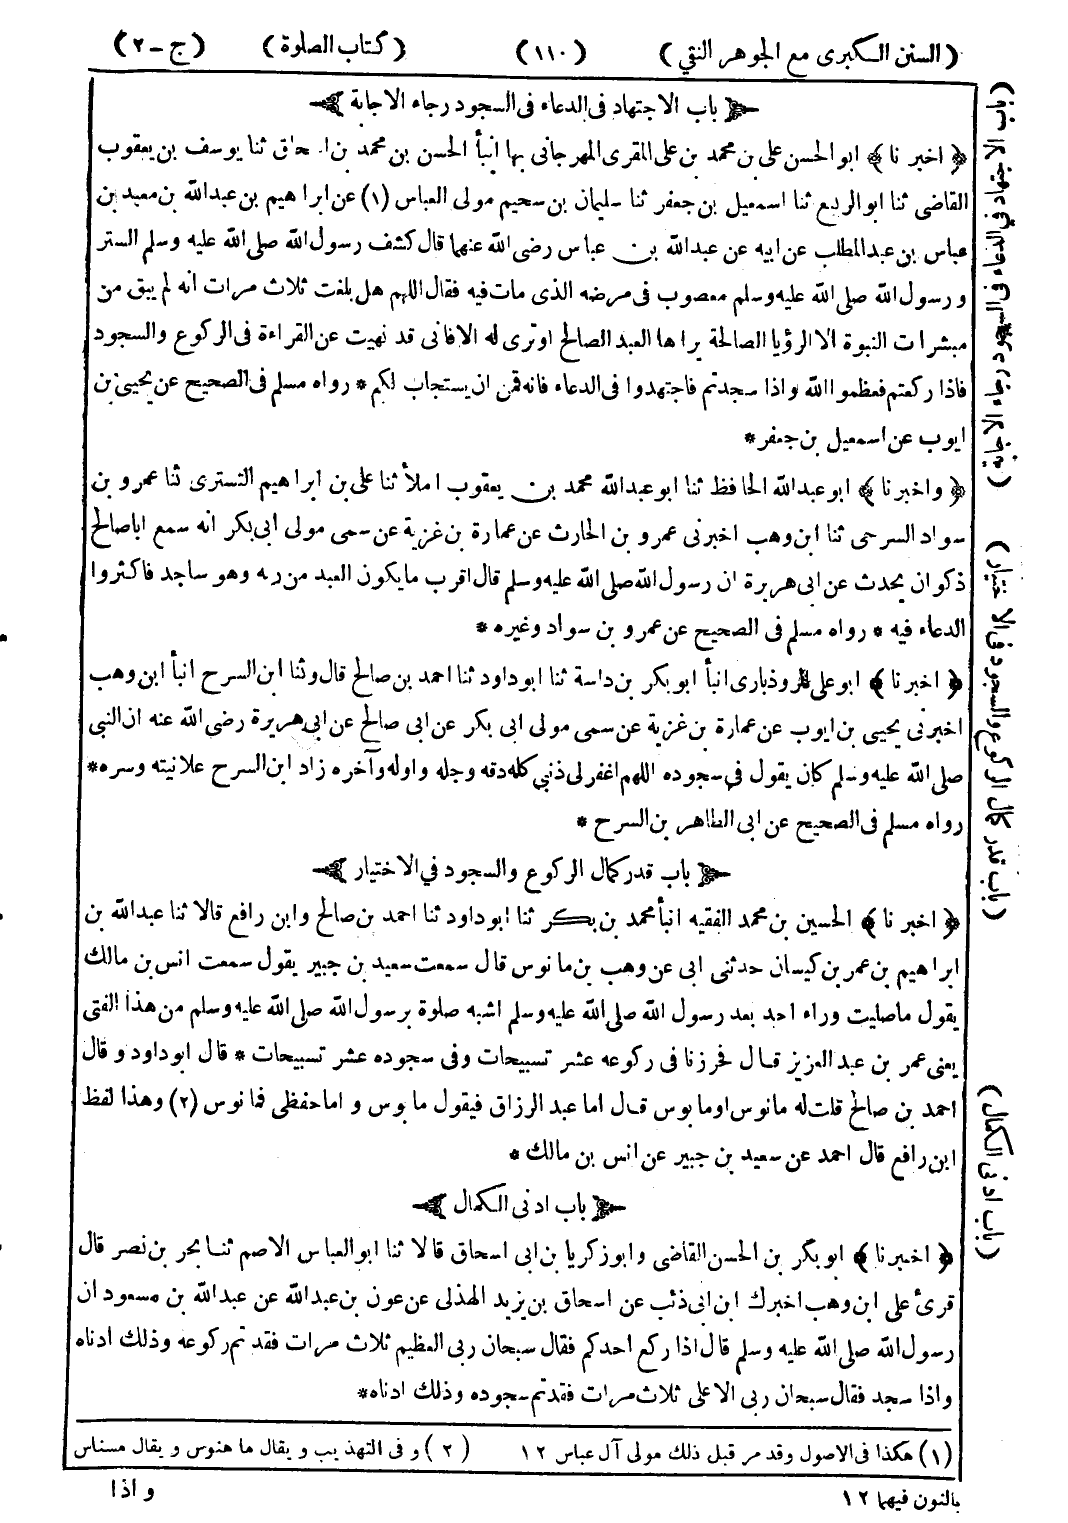 ( السنن الكبرى مع الجوهر النقي ) ( ١١٠ ) ( كتاب الصلوة ) ( ج - ٢ )
باب الاجتهاد فى الدعاء فى السجود رجاء الاجابة
﴿ اخبر نا ﴾ ابو الحسن على بن محمد بن على المقرى المهرجانى بها انبأ الحسن بن محمد بن اسحاق ثنا يوسف بن يعقوب
القاضى ثنا ابو الربيع ثنا اسمعيل بن جعفر ثنا سليمان بن سحيم مولى العباس (١) عن ابرا هيم بن عبدالله بن معبد بن
عباس بن عبد المطلب عن ابيه عن عبدالله بن عباس رضى الله عنهما قال كشف رسول الله صلى الله عليه وسلم الستر
و رسول الله صلى الله عليه وسلم معصوب فى مرضه الذى مات فيه فقال اللهم هل بلغت ثلاث مرات انه لم يبق من
مبشرات النبوة الا الرؤيا الصالحة يرا ها العبد الصالح او ترى له الا فانى قد نهيت عن القراءة فى الركوع والسجود
فاذا ركعتم فعظموا الله واذا سجدتم فاجتهدوا فى الدعاء فانه قمن ان يستجاب لكم * رواه مسلم فى الصحيح عن يحيى بن
ايوب عن اسمعيل بن جعفر *
﴿ واخبرنا ﴾ ابو عبدالله الحافظ ثنا ابو عبدالله محمد بن يعقوب املأ ثنا على بن ابرا هيم التسترى ثنا عمرو بن
سواد السرحى ثنا ابن وهب اخبرنى عمرو بن الحارث عن عمارة بن غزية عن سمى مولى ابى بكر انه سمع اباصالح
ذكوان يحدث عن ابى هريرة ان رسول الله صلى الله عليه وسلم قال اقرب ما يكون العبد من ربه وهو ساجد فاكثروا
الدعاء فيه * رواه مسلم فى الصحيح عن عمرو بن سواد وغيره *
﴿ اخبرنا ﴾ ابو على الروذبارى انبأ ابو بكر بن داسة ثنا ابو داود ثنا احمد بن صالح قال وثنا ابن السرح انبأ ابن وهب
اخبرنى يحيى بن ايوب عن عمارة بن غزية عن سمى مولى ابى بكر عن ابى صالح عن ابى هريرة رضى الله عنه ان النبى
صلى الله عليه وسلم كان يقول فى سجوده اللهم اغفر لى ذنبى كله دقه وجله واوله وآخره زاد ابن السرح علانيته وسره *
رواه مسلم فى الصحيح عن ابى الطاهر بن السرح *
باب قدر كمال الركوع والسجود في الاختيار
﴿ اخبر نا ﴾ الحسين بن محمد الفقيه انبأ محمد بن بكر ثنا ابوداود ثنا احمد بن صالح وابن رافع قالا ثنا عبدالله بن
ابرا هيم بن عمر بن كيسان حدثنى ابى عن وهب بن مانوس قال سمعت سعيد بن جبير يقول سمعت انس بن مالك
يقول ماصليت وراء احد بعد رسول الله صلى الله عليه وسلم اشبه صلوة برسول الله صلى الله عليه وسلم من هذا الفتى
يعنى عمر بن عبد العزيز قال فحزرنا فى ركوعه عشر تسبيحات وفى سجوده عشر تسبيحات * قال ابوداود و قال
احمد بن صالح قلت له مانوس اوما بوس قال اما عبد الرزاق فيقول ما بوس و اما حفظى فما نوس (٢) وهذا لفظ
ابن رافع قال احمد عن سعيد بن جبير عن انس بن مالك *
باب ادنى الكمال
﴿ اخبرنا ﴾ ابو بكر بن الحسن القاضى وابوزكريا بن ابى اسحاق قالا ثنا ابوالعباس الاصم ثنا بحر بن نصر قال
قرئ على ابن وهب اخبرك ابن ابى ذئب عن اسحاق بن يزيد الهذلى عن عون بن عبدالله عن عبدالله بن مسعود ان
رسول الله صلى الله عليه وسلم قال اذا ركع احدكم فقال سبحان ربى العظيم ثلاث مرات فقد تم ركوعه وذلك ادناه
واذا سجد فقال سبحان ربى الاعلى ثلاث مرات فقد تم سجوده وذلك ادناه *
(١) هكذا فى الاصول وقد مر قبل ذلك مولى آل عباس ١٢ (٢) و فى التهذيب و يقال ما هنوس و يقال مسناس
بالنون فيهما ١٢
و اذا
( باب الاجتهاد في الدعاء في السجود رجاء الاجابة )
( باب قدر كمال الركوع والسجود فى الاختيار )
( باب ادنى الكمال )